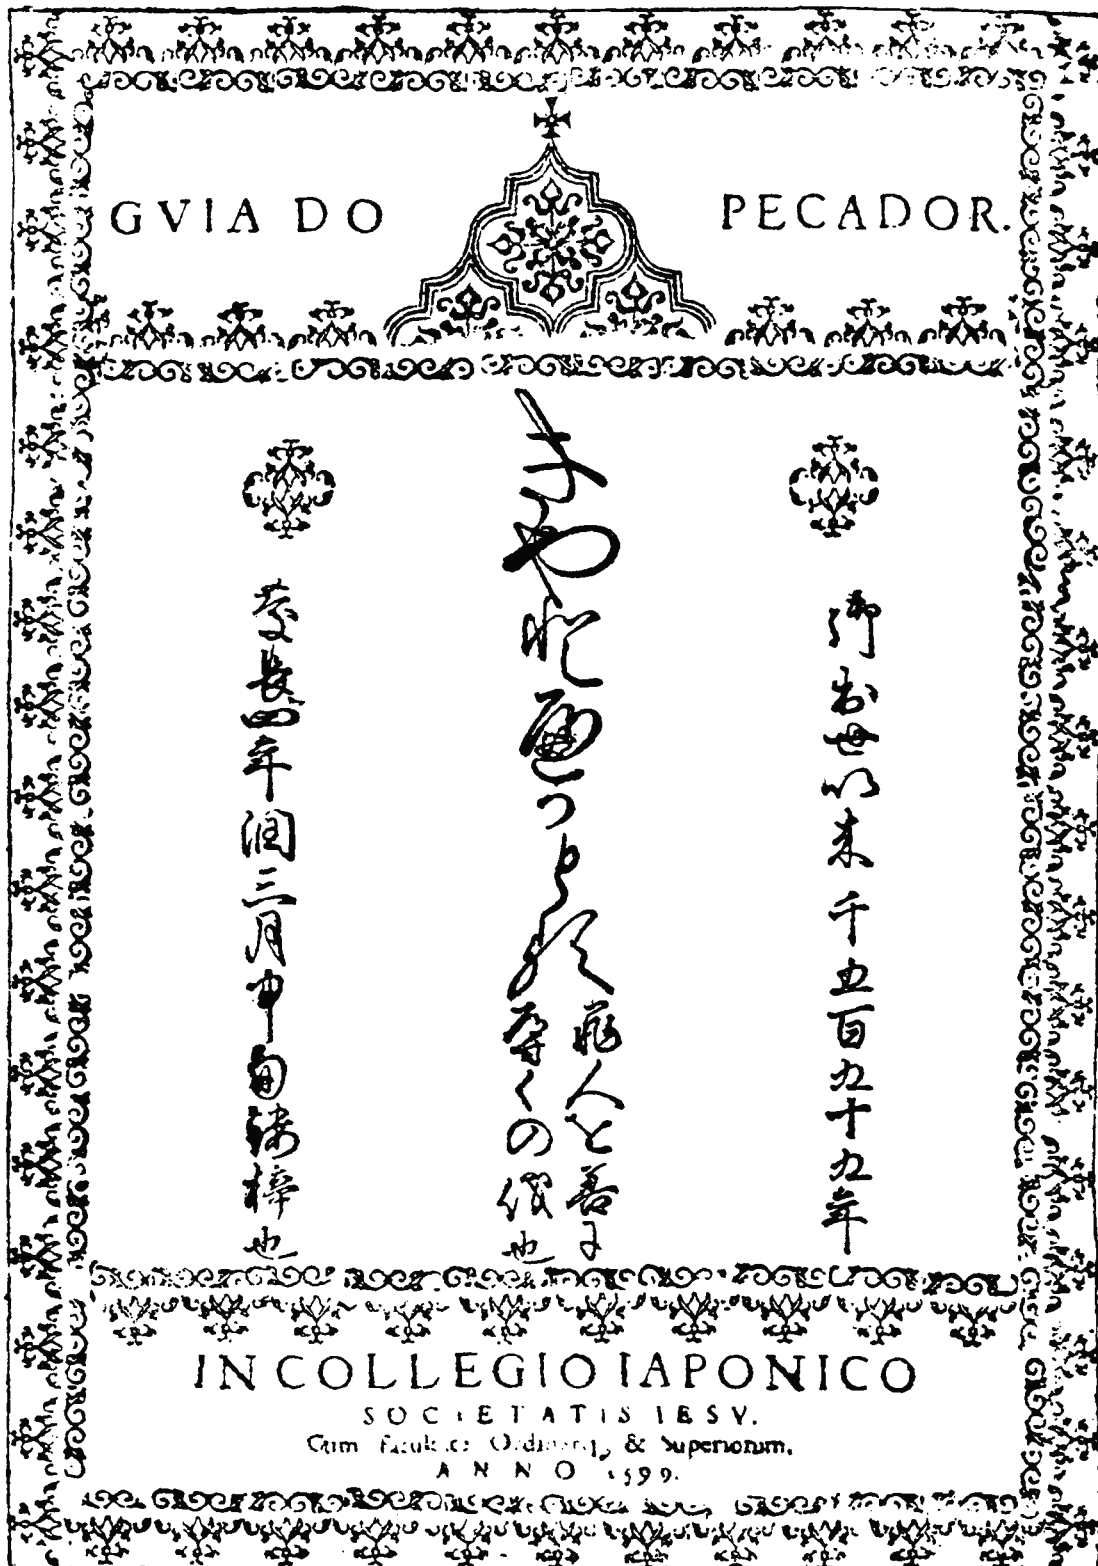 GVIA DO PECADOR.
御出世以来千五百九十九年
きやどぺかどる
罪人を善に
導くの儀也
慶長四年閏三月中旬鏤梓也
IN COLLEGIO IAPONICO
SOCIETATIS IESV.
Cum facultate Ordinarij, & Superiorum.
ANNO 1599.